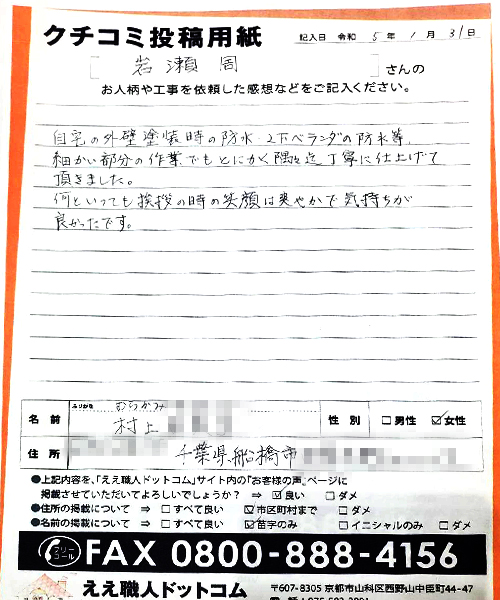 クチコミ投稿用紙
記入日 令和 5年 1月 31日
岩瀬 周 さんの
お人柄や工事を依頼した感想などをご記入ください。
自宅の外壁塗装時の防水・2Fベランダの防水等、
細かい部分の作業でもとにかく隅々迄丁寧に仕上げて
頂きました。
何といっても挨拶の時の笑顔は爽やかで気持ちが
良かったです。
ふりがな むらかみ
名前 村上 性別 □男性 ☑女性
住所 千葉県船橋市
●上記内容を、「ええ職人ドットコム」サイト内の「お客様の声」ページに
掲載させていただいてよろしいでしょうか? ⇒ ☑良い □ダメ
●住所の掲載について ⇒ □すべて良い ☑市区町村まで □ダメ
●名前の掲載について ⇒ □すべて良い ☑苗字のみ □イニシャルのみ □ダメ
フリーコール FAX 0800-888-4156
ええ職人ドットコム 〒607-8305 京都市山科区西野山中臣町44-47